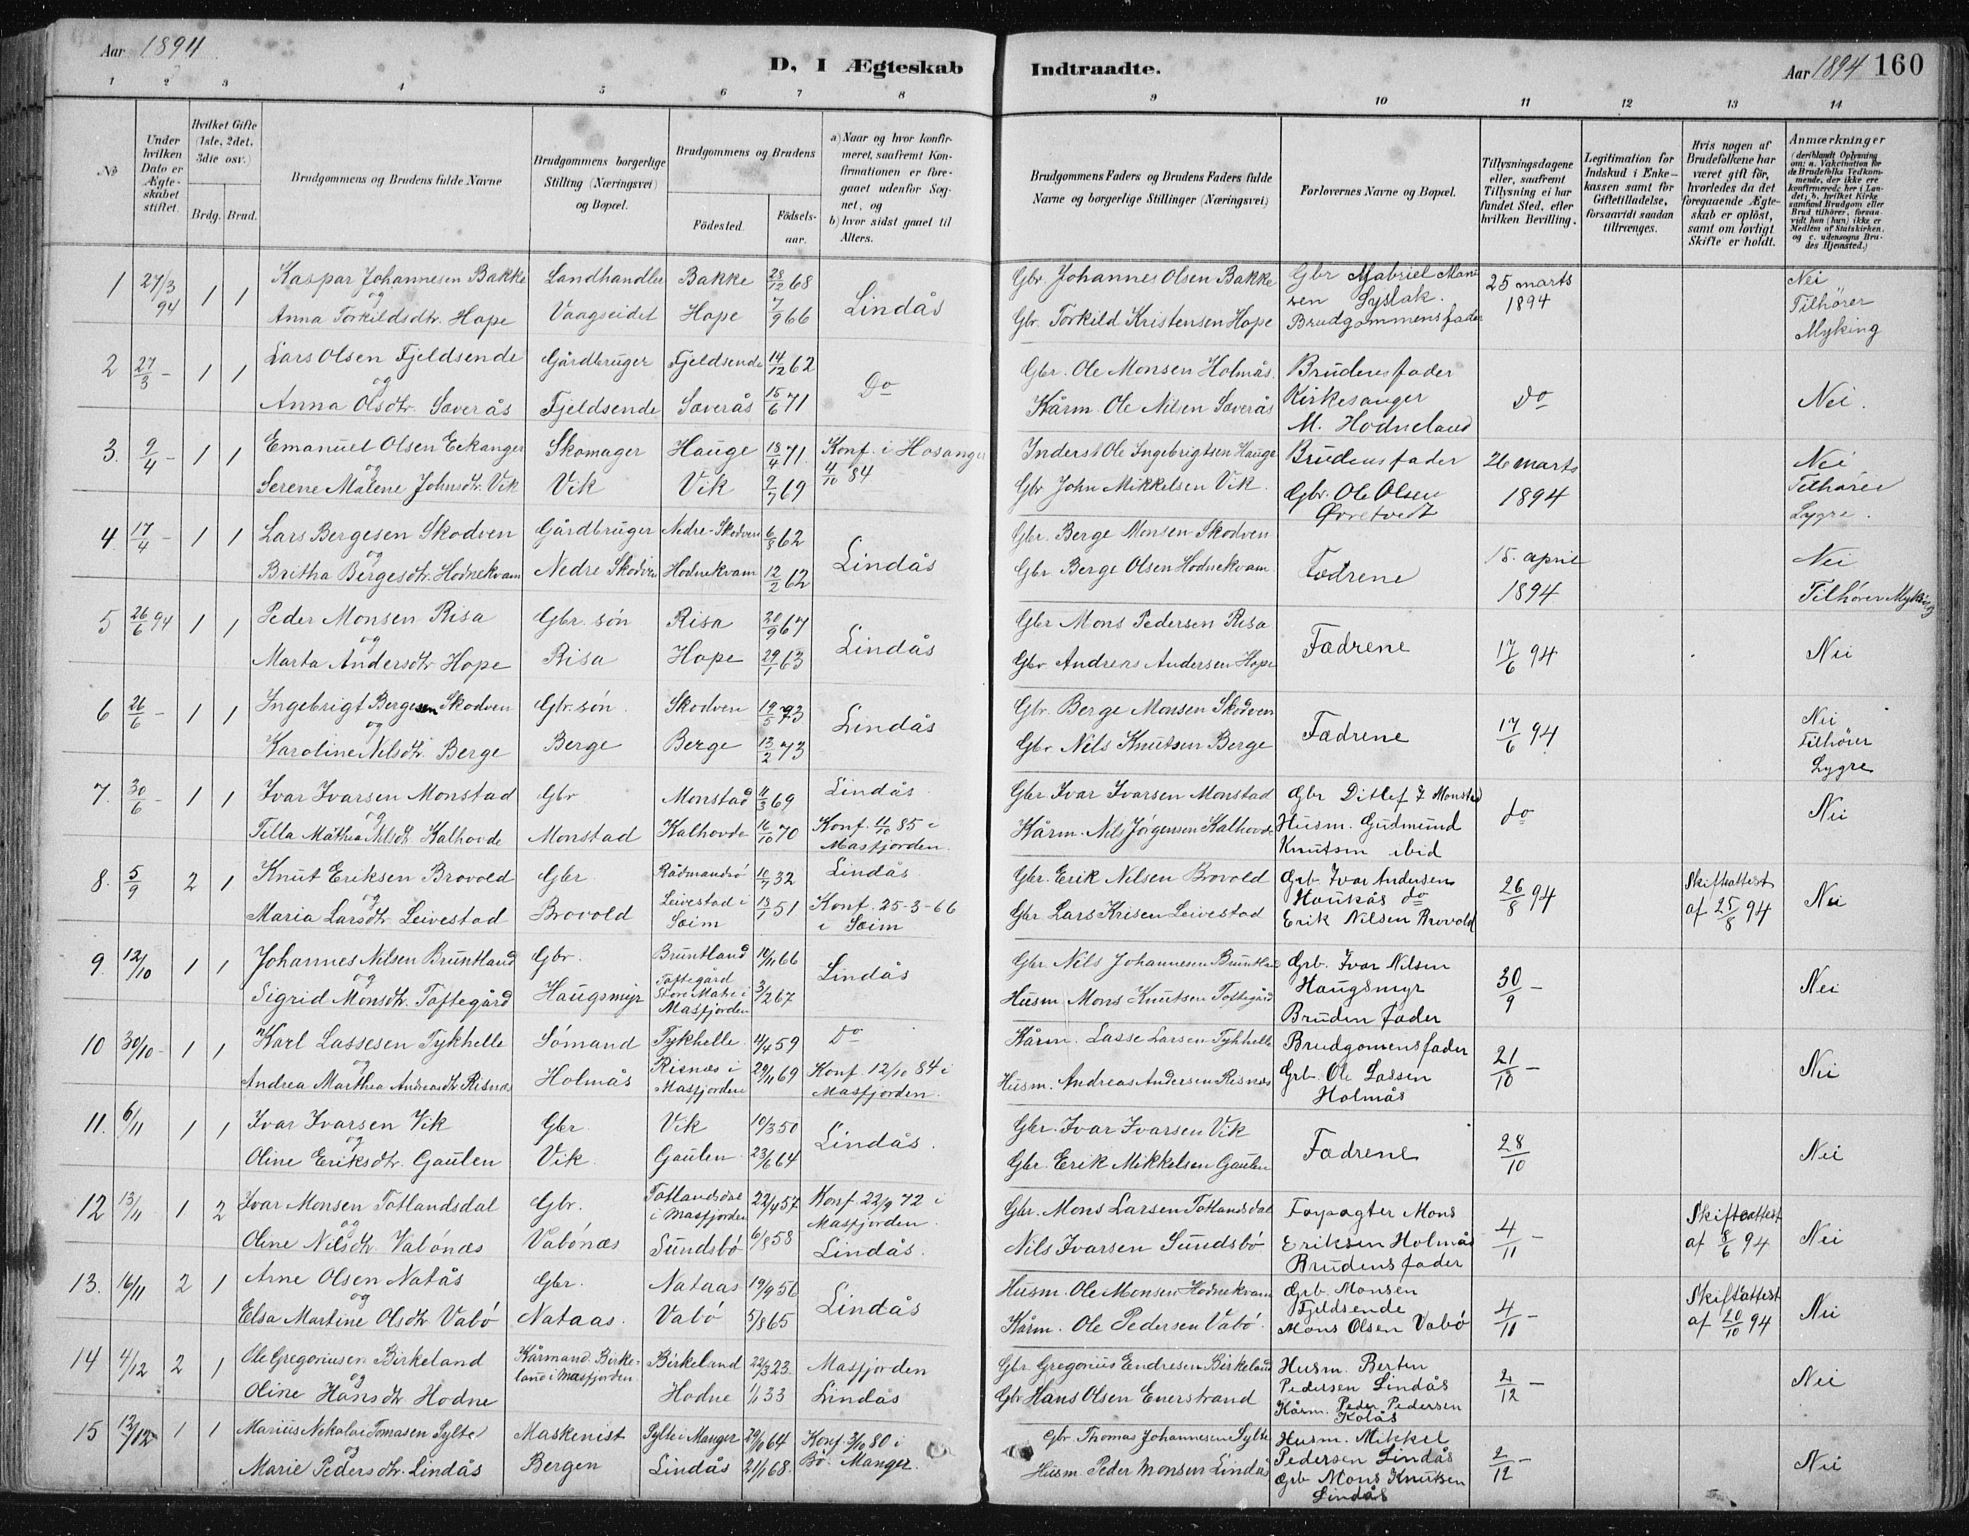 Aar 1894
D, I Ægteskab Indtraadte.
Aar 1894 160
1 2 3 4 5 6 7 8 9 10 11 12 13 14
No
Under hvilken Dato er Ægteskabet stiftet.
Hvilket Gifte (1ste, 2det, 3die osv.)
Brdg. Brud.
Brudgommens og Brudens fulde Navne
Brudgommens borgerlige Stilling (Næringsvei) og Bopæl.
Brudgommens og Brudens
Födested. Födselsaar.
a) Naar og hvor konfirmeret, saafremt Konfirmationen er foregaaet udenfor Sognet, og
b) hvor sidst gaaet til Alters.
Brudgommens Faders og Brudens Faders fulde Navne og borgerlige Stillinger (Næringsvei)
Forlovernes Navne og Bopæl.
Tillysningsdagene eller, saafremt Tillysning ei har fundet Sted, efter hvilken Bevilling.
Legitimation for Indskud i Enkekassen samt for Giftetilladelse, forsaavidt saadan tiltrænges.
Hvis nogen af Brudefolkene har været gift för, hvorledes da det foregaaende Ægteskab er oplöst, samt om lovligt Skifte er holdt.
Anmærkninger
(deriblandt Oplysning om: a. Vakcination for de Brudefolks Vedkommende, der ikke ere konfirmerede her i Landet; b. hvilket Kirkesamfund Brudgom eller Brud tilhører, forsaavidt han (hun) ikke er Medlem af Statskirken, og c. udensogns Brudes Hjemsted.)
1 27/3 94 1 1 Kaspar Johannesen Bakke Landhandler Bakke 28/12 68 Lindås Gbr. Johannes Olsen Bakke Gbr Gabriel Monsen Syslak. 25 marts 1894 Nei
og Anna Torkildsdtr. Hope Vaagseidet Hope 7/9 66 Gbr. Torkild Kristensen Hope Brudgommens fader Tilhører Myking
2 27/3 - 1 1 Lars Olsen Fjeldsende Gårdbruger Fjeldsende 14/12 62 Do Gbr. Ole Monsen Holmås. Brudens fader do Nei.
og Anna Olsdtr. Saverås Fjeldsende Saverås 15/6 71 Kårm. Ole Nilsen Saverås Kirkesanger M. Hodneland
3. 9/4 - 1 1 Emanuel Olsen Eekanger Skomager Hauge 13/4 71. Konf. i Hosanger 4/10 84 Inderst Ole Ingebrigtsen Hauge Brudens fader 26 marts 1894 Nei
og Serene Malene Johnsdtr. Vik Vik Vik 2/7 69 Gbr John Mikkelsen Vik. Gbr. Ole Olsen Øvretvedt Tilhører Lygre.
4. 17/4 - 1 1 Lars Bergesen Skodven Gårdbruger Nedre-Skodven 6/8 62 Lindås Gbr. Berge Monsen Skodven Fædrene 15. april 1894 Nei
og Britha Bergesdtr. Hodnekvam Nedre Skodven Hodnekvam 12/2 62 Gbr Berge Olsen Hodnekvam Tilhører Myking
5 26/6 94 1 1 Peder Monsen Risa Gbr. søn Risa 20/9 67 Lindås Gbr Mons Pedersen Risa Fædrene 17/6 94 Nei
og Marta Andersdtr. Hope Risa Hope 29/1 63 Gbr Anders Andersen Hope
6 26/6 - 1 1 Ingebrigt Bergesen Skodven Gbr. søn. Skodven 19/5 73 Lindås Gbr. Berge Monsen Skodven Fædrene 17/6 94 Nei
og Karoline Nilsdtr. Berge Berge Berge 13/2 73 Gbr Nils Knutsen Berge Tilhører Lygre
7. 30/6 - 1 1 Ivar Ivarsen Monstad Gbr Monstad 11/3 69 Lindås. Gbr Ivar Ivarsen Monstad Gbr Ditlef I Monstad do Nei
og Tilla Mathea Nilsdtr. Kalhovde Monstad Kalhovde 16/10 70 Konf. 11/10 85 i Masfjorden. Kårm. Nils Jørgensen Kalhovde Husm. Gudmund Knutsen ibid
8. 5/9 2 1 Knut Eriksen Brovold Gbr Rådmandsø 10/7 32 Lindås Gbr. Erik Nilsen Brovold Grb. Ivar Andersen Haukås do 26/8 94 Skifteattest af 25/8 94 Nei
og Maria Larsdtr. Leivestad Brovold Leivestad i Seim 13/1 51 Konf. 25-3-66 i Seim Gbr Lars Krisen Leivestad Erik Nilsen Brovold
9. 12/10 1 1 Johannes Nilsen Bruntland Gbr. Bruntland 10/11 66 Lindås Gbr Nils Johannesen Bruntland Grb. Ivar Nilsen Haugsmyr 30/9 - Nei
og Sigrid Monsdtr. Toftegård Haugsmyr Toftegård Store Matre i Masfjorden 3/2 67 Husm Mons Knutsen Toftegård Bruden fader
10 30/10 - 1 1 Karl Lassesen Tykhelle Sømand Tykhelle. 11/4 59 Do Kårm. Lasse Larsen Tykhelle Brudgomens fader 21/10 - Nei
og Andrea Marthea Andreasdtr. Risnæs Holmås Risnæs i Masfjorden 29/11 69 Konf. 12/10 84 i Masfjorden. Husm. Andreas Andersen Risnæs Grb. Ole Lassen Holmås
11. 6/11 1 1 Ivar Ivarsen Vik Gbr. Vik 10/3 50 Lindås. Gbr. Ivar Ivarsen Vik Fædrene 28/10 Nei
og Oline Eriksdtr. Gaulen Vik. Gaulen 23/6 64 Gbr. Erik Mikkelsen Gaulen
12 13/11 1 2 Ivar Monsen Totlandsdal Gbr. Totlandsdal i Masfjorden 22/4 57 Konf. 22/9 72 i Masfjorden. Gbr. Mons Larsen Totlandsdal Forpagter Mons Eriksen Holmås 4/11 - Skifteattest af 8/6 94 Nei
og Oline Nilsdtr. Vabónæs Vabónæs Sundsbó 6/8 58 Lindås. Nils Ivarsen Sundsbó Brudens fader
13. 16/11 2 1 Arne Olsen Natås Gbr. Nataas 19/9 56 Lindås Husm. Ole Monsen Hodnekvam Grb. Monsen Fjeldsende 4/11 - Skifteattest af 20/10 94 Nei
og Elsa Martine Olsdtr Vabó Nataas. Vabó 5/8 65 Kårm. Ole Pedersen Vabó. Mons Olsen Vabó
14 4/12 2 1 Ole Gregoriusen Birkeland Kårmand. Birkeland i Masfjorden Birkeland 22/3 23. Masfjorden Gbr. Gregorius Endresen Birkeland Husm. Berten Pedersen Lindås 2/12 - Nei
og Oline Hansdtr Hodne Hodne 1/1 33 Lindås Gbr Hans Olsen Enerstrand Kårm. Peder Pedersen Kolås
15 12/12 1 1 Marius Nikolai Tomasen Sylte Maskenist Sylte i Manger 29/10 64 Konf. 3/10 80 i Bø. Manger. Gbr. Thomas Johannesen Sylte Husm. Mikkel Pedersen Lindås 2/12 - Nei
og Marie Pedersdtr. Lindås Bergen Lindås 21/1 68. Husm Peder Monsen Lindås Grb Mons Knutsen Lindås